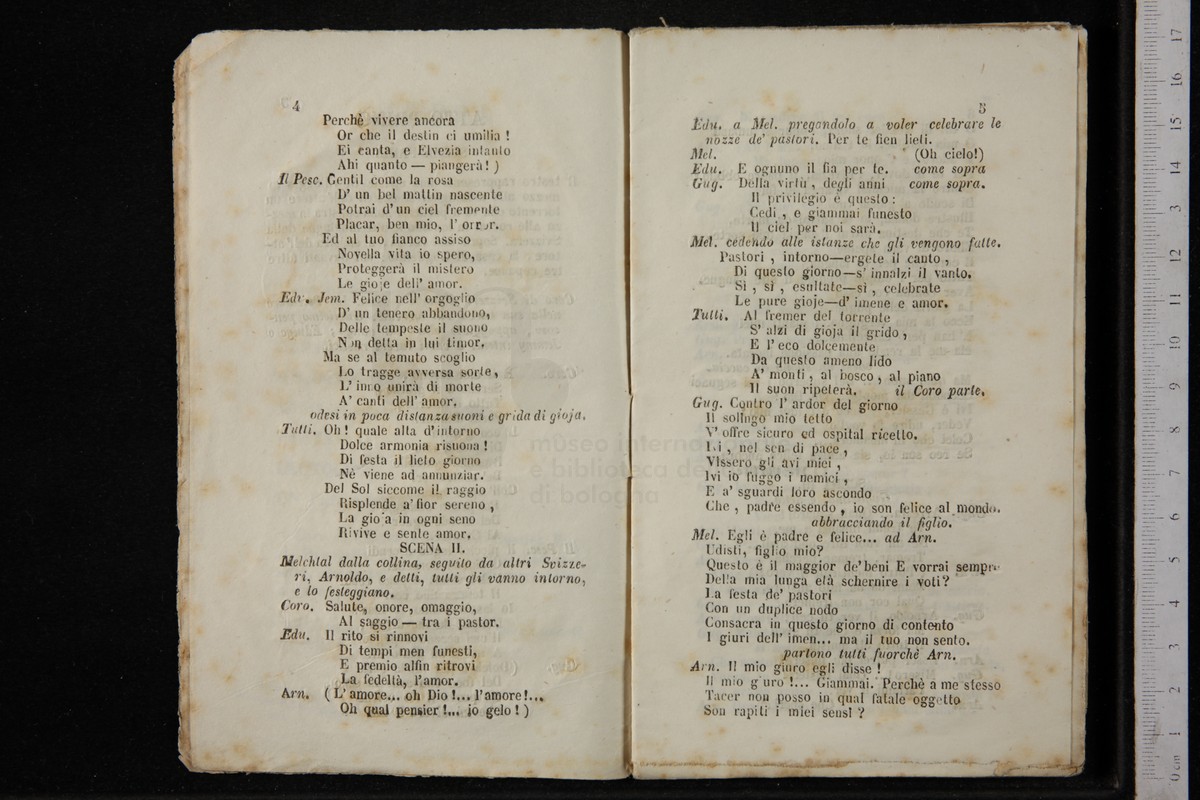 4
Perchè vivere ancora
Or che il destin ci umilia !
Ei canta, e Elvezia intanto
Ahi quanto — piangerà! )
Il Pesc. Gentil come la rosa
D' un bel mattin nascente
Potrai d' un ciel fremente
Placar, ben mio, l' orror.
Ed al tuo fianco assiso
Novella vita io spero,
Proteggerà il mistero
Le gioje dell' amor.
Edv. Jem. Felice nell' orgoglio
D' un tenero abbandono,
Delle tempeste il suono
Non detta in lui timor.
Ma se al temuto scoglio
Lo tragge avversa sorte,
L' inno unirà di morte
A' canti dell' amor.
odesi in poca distanza suoni e grida di gioja.
Tutti. Oh ! quale alta d' intorno
Dolce armonia risuona !
Di festa il lieto giorno
Nè viene ad annunziar.
Del Sol siccome il raggio
Risplende a' fior sereno ,
La gioja in ogni seno
Rivive e sente amor.
SCENA II.
Melchtal dalla collina, seguito da altri Svizze-
ri, Arnoldo, e detti, tutti gli vanno intorno,
e lo festeggiano.
Coro. Salute, onore, omaggio,
Al saggio — tra i pastor.
Edu. Il rito si rinnovi
Di tempi men funesti,
E premio alfin ritrovi
La fedeltà, l'amor.
Arn. ( L' amore... oh Dio !... l'amore !...
Oh qual pensier !... io gelo ! )
5
Edu. a Mel. pregandolo a voler celebrare le
nozze de' pastori. Per te fien lieti.
Mel. (Oh cielo!)
Edu. E ognuno il fia per te. come sopra
Gug. Della virtù , degli anni come sopra.
Il privilegio è questo :
Cedi , e giammai funesto
Il ciel per noi sarà.
Mel. cedendo alle istanze che gli vengono fatte.
Pastori , intorno—ergete il canto ,
Di questo giorno—s' innalzi il vanto.
Sì , sì , esultate—sì , celebrate
Le pure gioje—d' imene e amor.
Tutti. Al fremer del torrente
S' alzi di gioja il grido ,
E l' eco dolcemente
Da questo ameno lido
A' monti , al bosco , al piano
Il suon ripeterà. il Coro parte.
Gug. Contro l' ardor del giorno
Il solingo mio tetto
V' offre sicuro ed ospital ricetto.
Ivi , nel sen di pace ,
Vissero gli avi miei ,
Ivi io fuggo i nemici ,
E a' sguardi loro ascondo
Che , padre essendo , io son felice al mondo.
abbracciando il figlio.
Mel. Egli è padre e felice... ad Arn.
Udisti, figlio mio?
Questo è il maggior de' beni E vorrai sempre
Della mia lunga età schernire i voti?
La festa de' pastori
Con un duplice nodo
Consacra in questo giorno di contento
I giuri dell' imen... ma il tuo non sento.
partono tutti fuorchè Arn.
Arn. Il mio giuro egli disse !
Il mio giuro !... Giammai. Perchè a me stesso
Tacer non posso in qual fatale oggetto
Son rapiti i miei sensi ?
museo interna
e biblioteca de
di bologna
0 cm 1 2 3 4 5 6 7 8 9 10 11 12 13 14 15 16 17